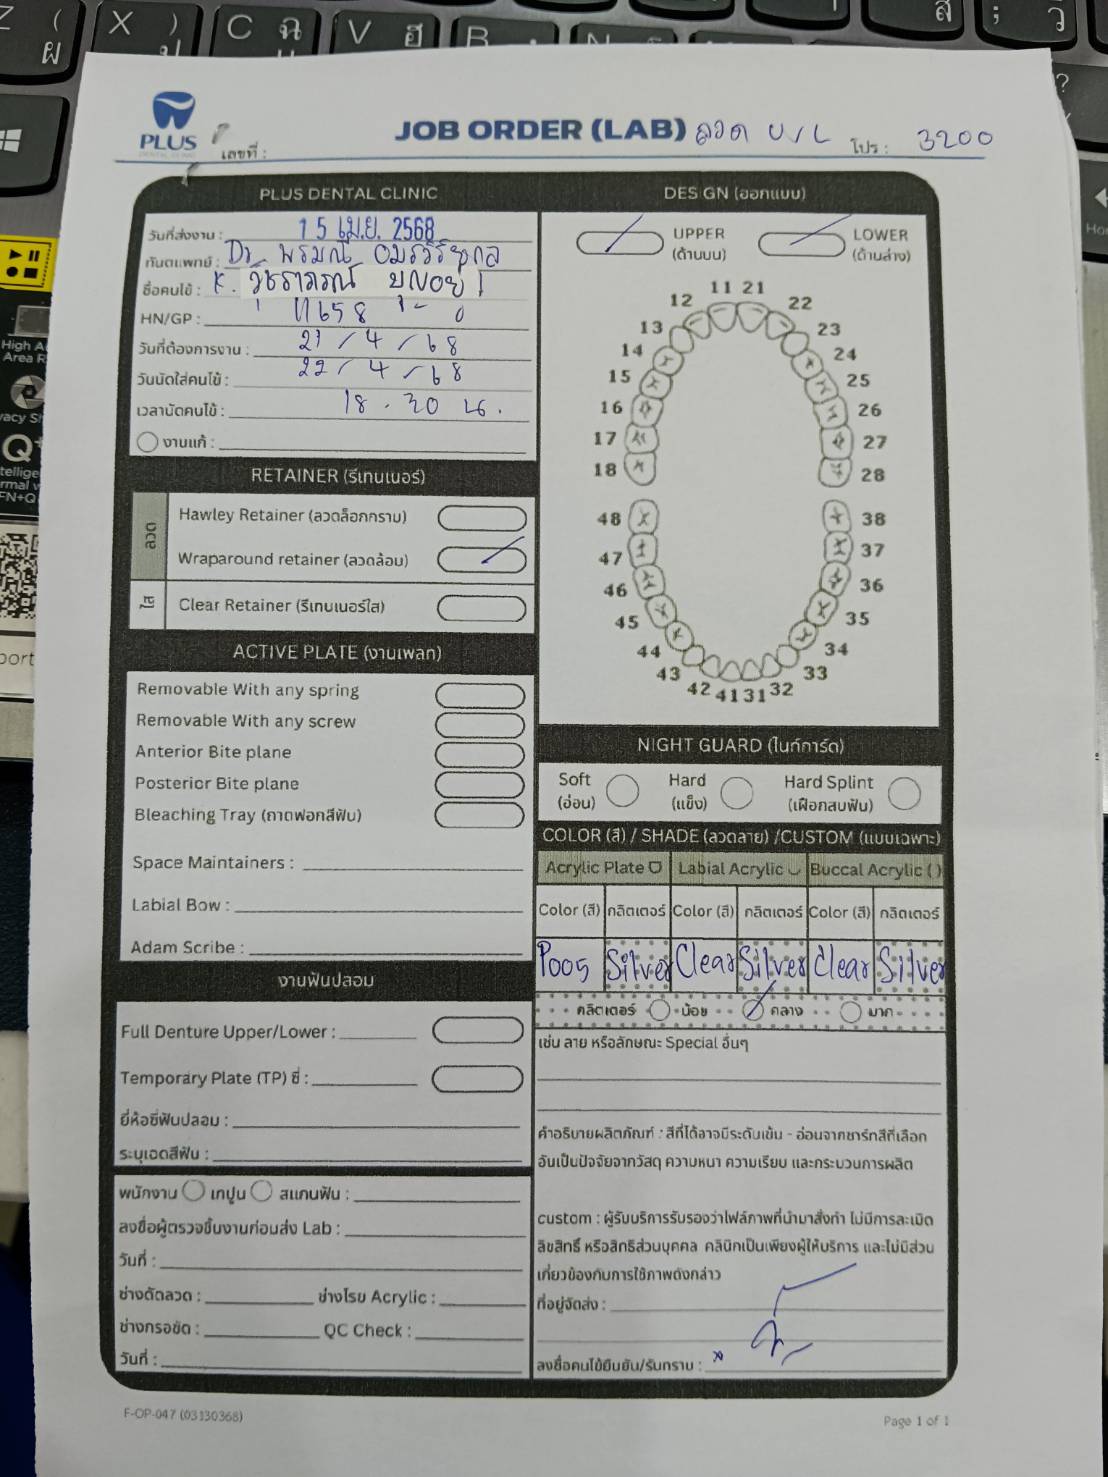 PLUS
DENTAL CLINIC
เลขที่ :
JOB ORDER (LAB) ลวด U/L โปร : 3200
PLUS DENTAL CLINIC
วันที่ส่งงาน : 15 เม.ย. 2568
ทันตแพทย์ : Dr. พรมณี
ชื่อคนไข้ : K. วัชราภรณ์
HN/GP : 11658
วันที่ต้องการงาน : 21 / 4 / 68
วันนัดใส่คนไข้ : 22 / 4 / 68
เวลานัดคนไข้ : 18.30 น.
งานแก้ :
RETAINER (รีเทนเนอร์)
ลวด
Hawley Retainer (ลวดล็อกกราม)
Wraparound retainer (ลวดล้อม)
ใส
Clear Retainer (รีเทนเนอร์ใส)
ACTIVE PLATE (งานเพลท)
Removable With any spring
Removable With any screw
Anterior Bite plane
Posterior Bite plane
Bleaching Tray (ถาดฟอกสีฟัน)
Space Maintainers :
Labial Bow :
Adam Scribe :
งานฟันปลอม
Full Denture Upper/Lower :
Temporary Plate (TP) ซี่ :
ยี่ห้อซี่ฟันปลอม :
ระบุเฉดสีฟัน :
พนักงาน เทปูน สแกนฟัน :
ลงชื่อผู้ตรวจชิ้นงานก่อนส่ง Lab :
วันที่ :
ช่างดัดลวด : ช่างโรย Acrylic :
ช่างกรอขัด : QC Check :
วันที่ :
DESIGN (ออกแบบ)
UPPER LOWER
(ด้านบน) (ด้านล่าง)
11 21
12 22
13 23
14 24
15 25
16 26
17 27
18 28
48 38
47 37
46 36
45 35
44 34
43 33
42 41 31 32
NIGHT GUARD (ไนท์การ์ด)
Soft Hard Hard Splint
(อ่อน) (แข็ง) (เฝือกสบฟัน)
COLOR (สี) / SHADE (ลวดลาย) /CUSTOM (แบบเฉพาะ)
Acrylic Plate Labial Acrylic Buccal Acrylic ( )
Color (สี) กลิตเตอร์ Color (สี) กลิตเตอร์ Color (สี) กลิตเตอร์
P005 Silver Clear Silver Clear Silver
กลิตเตอร์ น้อย กลาง มาก
เช่น ลาย หรือลักษณะ Special อื่นๆ
คำอธิบายผลิตภัณฑ์ : สีที่ได้อาจมีระดับเข้ม - อ่อนจากชาร์ทสีที่เลือก
อันเป็นปัจจัยจากวัสดุ ความหนา ความเรียบ และกระบวนการผลิต
custom : ผู้รับบริการรับรองว่าไฟล์ภาพที่นำมาสั่งทำ ไม่มีการละเมิด
ลิขสิทธิ์ หรือสิทธิส่วนบุคคล คลินิกเป็นเพียงผู้ให้บริการ และไม่มีส่วน
เกี่ยวข้องกับการใช้ภาพดังกล่าว
ที่อยู่จัดส่ง :
ลงชื่อคนไข้ยืนยัน/รับทราบ :
F-OP-047 (03130368)
Page 1 of 1